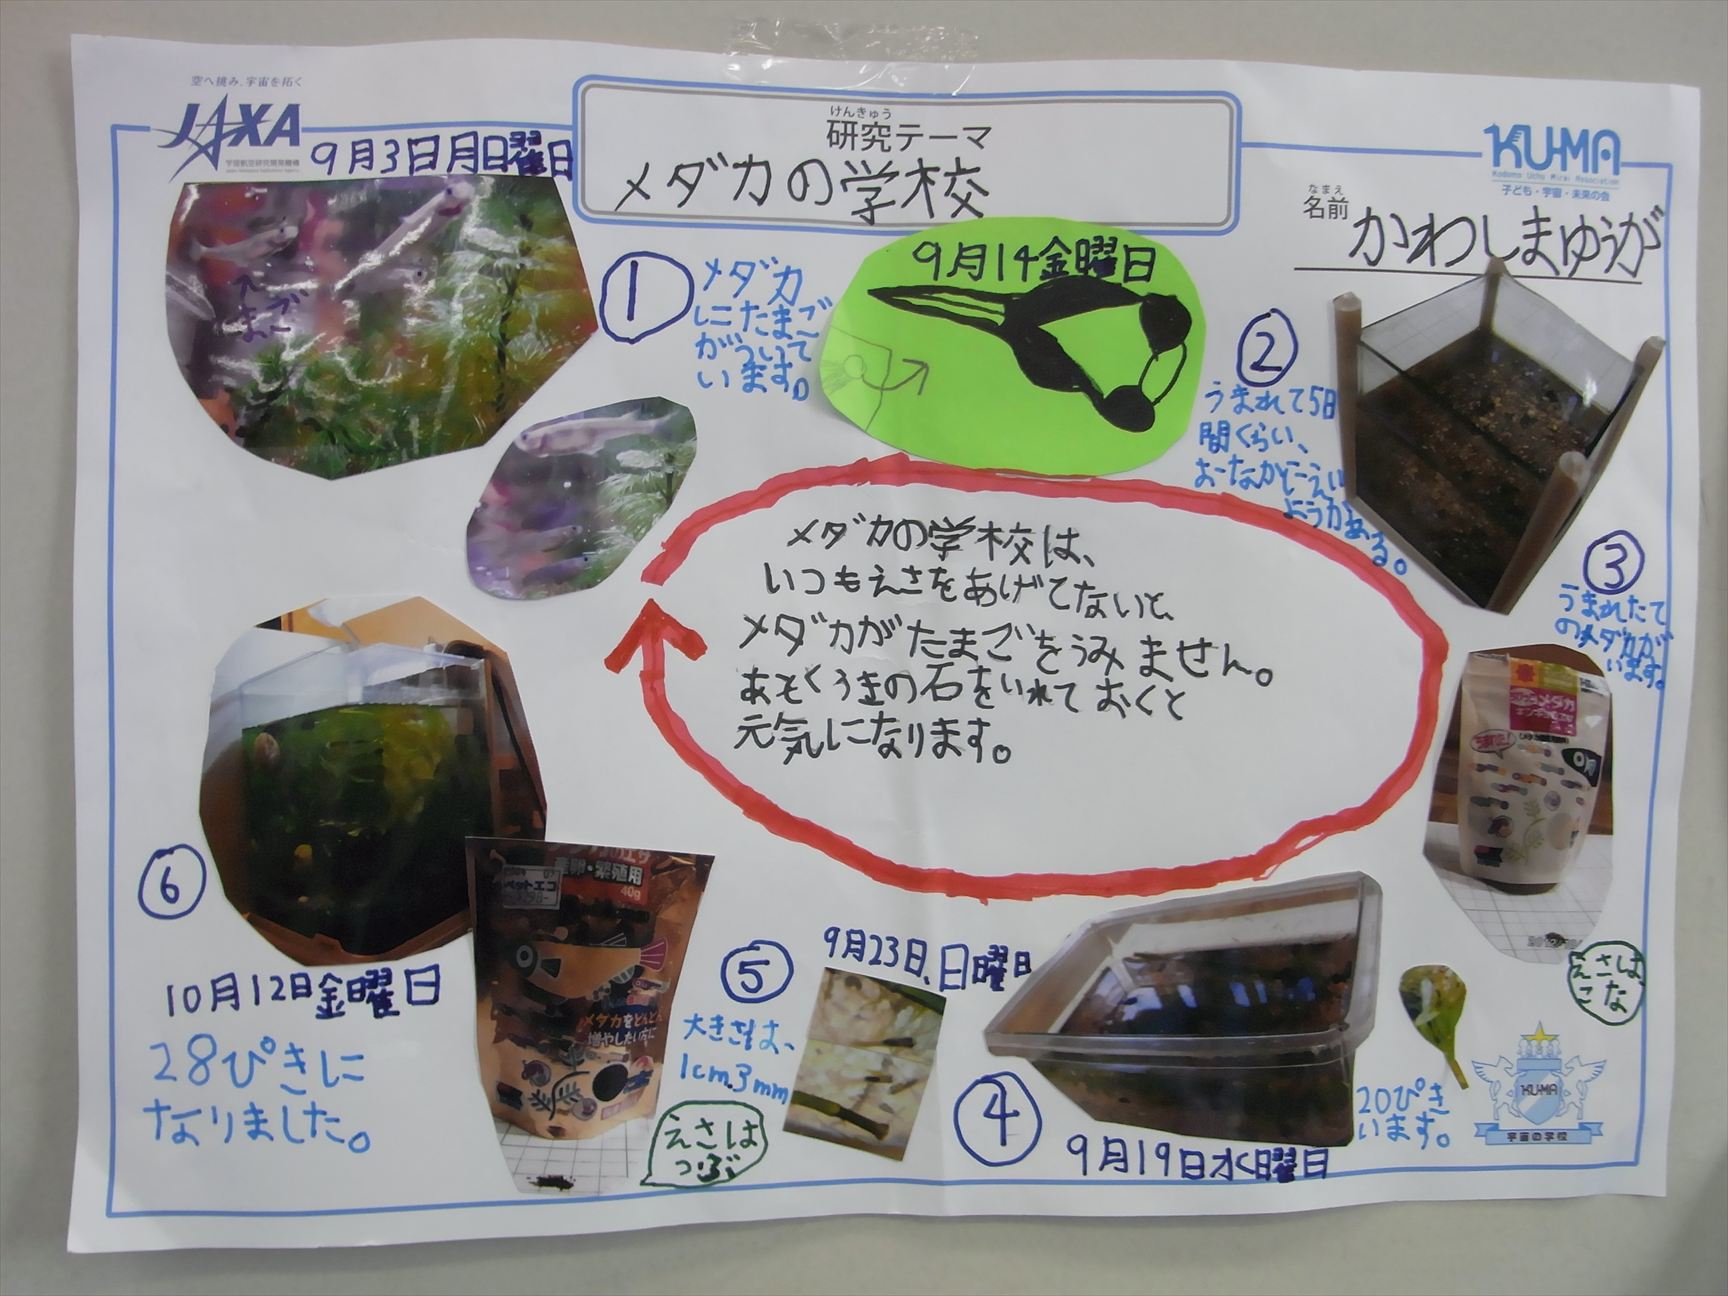 空へ挑み、宇宙を拓く
JAXA
宇宙航空研究開発機構
Japan Aerospace Exploration Agency
けんきゅう
研究テーマ
メダカの学校
KU-MA
Kodomo Uchu Mirai Association
子ども・宇宙・未来の会
なまえ
名前
かわしまゆうが
9月3日月曜日
たまご
①
メダカ
にたまご
がついて
います。
9月14金曜日
②
うまれて5日
間くらい、
おなかにえい
ようがある。
③
うまれたて
のメダカが
います。
メダカの学校は、
いつもえさをあげてないと、
メダカがたまごをうみません。
あそくうきの石をいれておくと
元気になります。
メダカ
えさは、
こな
④
9月19日水曜日
20ぴき
います。
⑤
9月23日、日曜日
大きさは、
1cm.3mm
産卵・繁殖用
40g
ペットエコ
メダカをどんどん
増やしたい方に
えさは
つぶ
⑥
10月12日金曜日
28ぴきに
なりました。
KU-MA
宇宙の学校